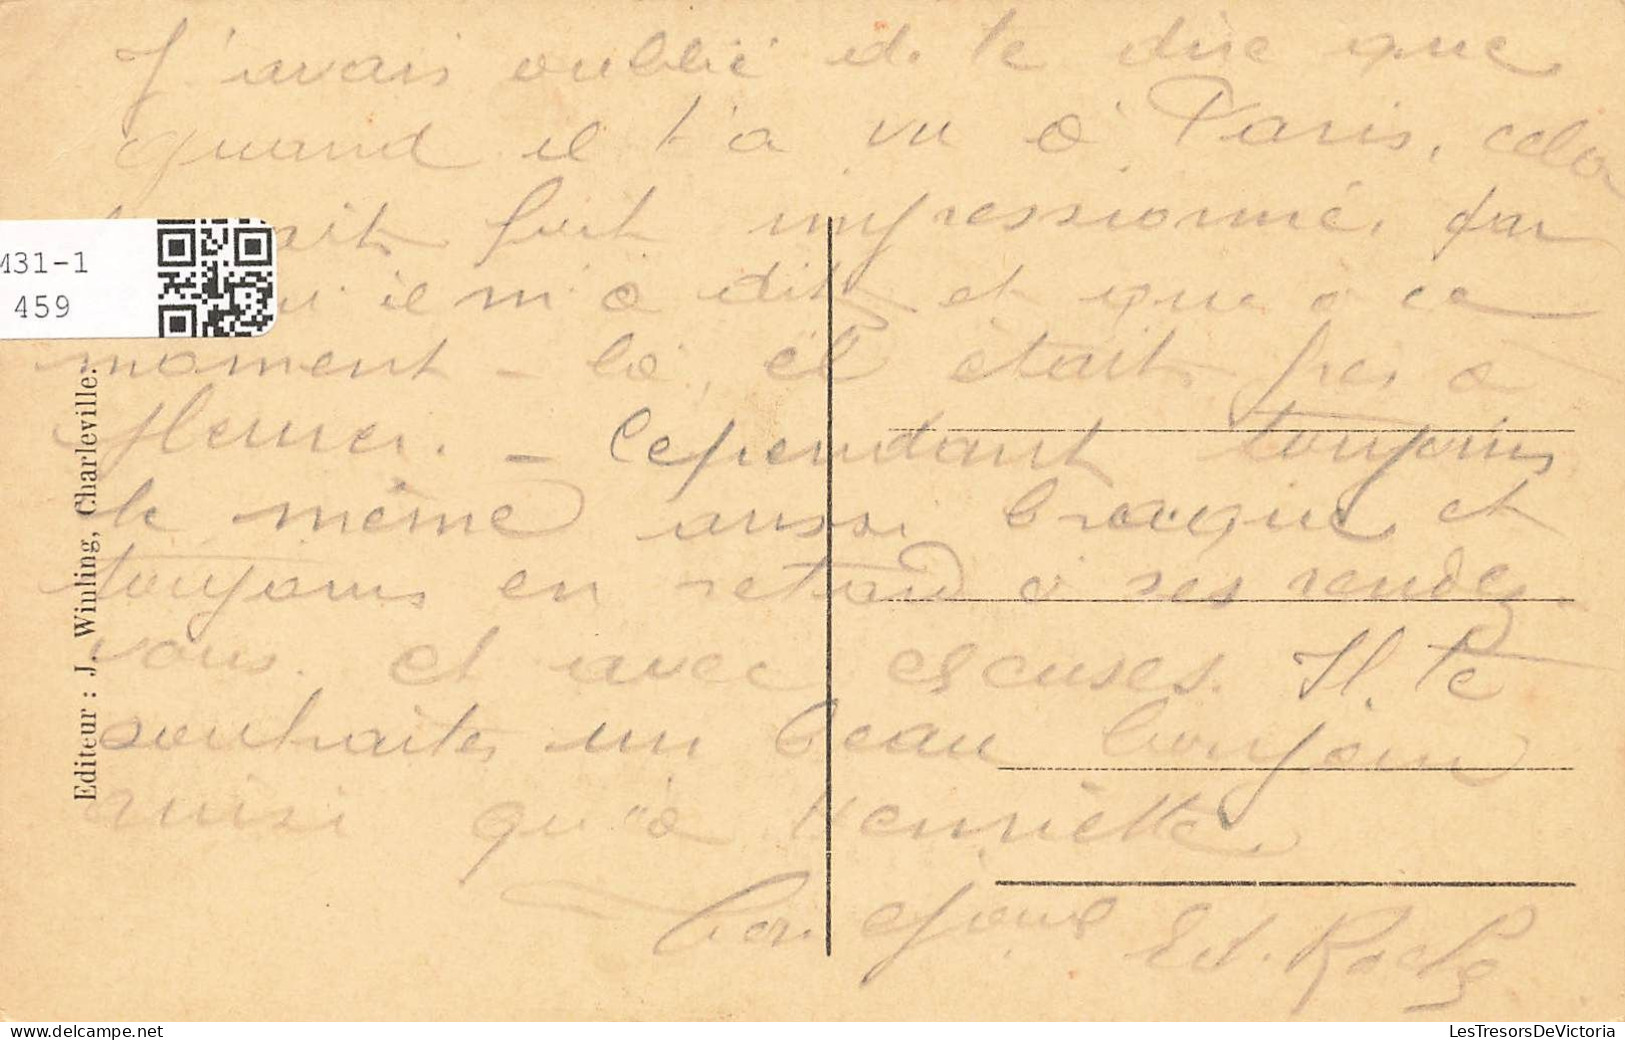 J'avais oublié de te dire que
quand il t'a vu à Paris, cela
fort impressionné, par
il m'a dit et que à ce
moment-là, il était près à
pleurer. - Cependant toujours
le même aussi braque et
toujours en retard à ses rendez-
vous et avec excuses. Il te
souhaite un beau bonjour
ainsi qu'à Henriette
Ed. Roche
Editeur : J. Winling, Charleville.
M31-1
459
LesTresorsDeVictoria